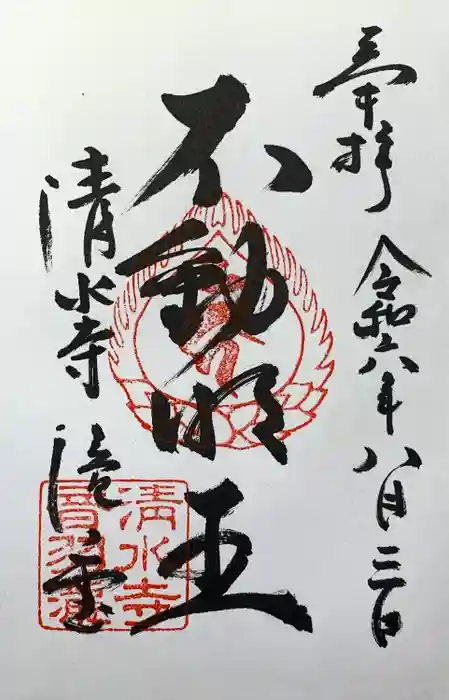 奉拝
令和六年八月三日
不動明王
清水寺
滝堂
清水寺
音羽滝